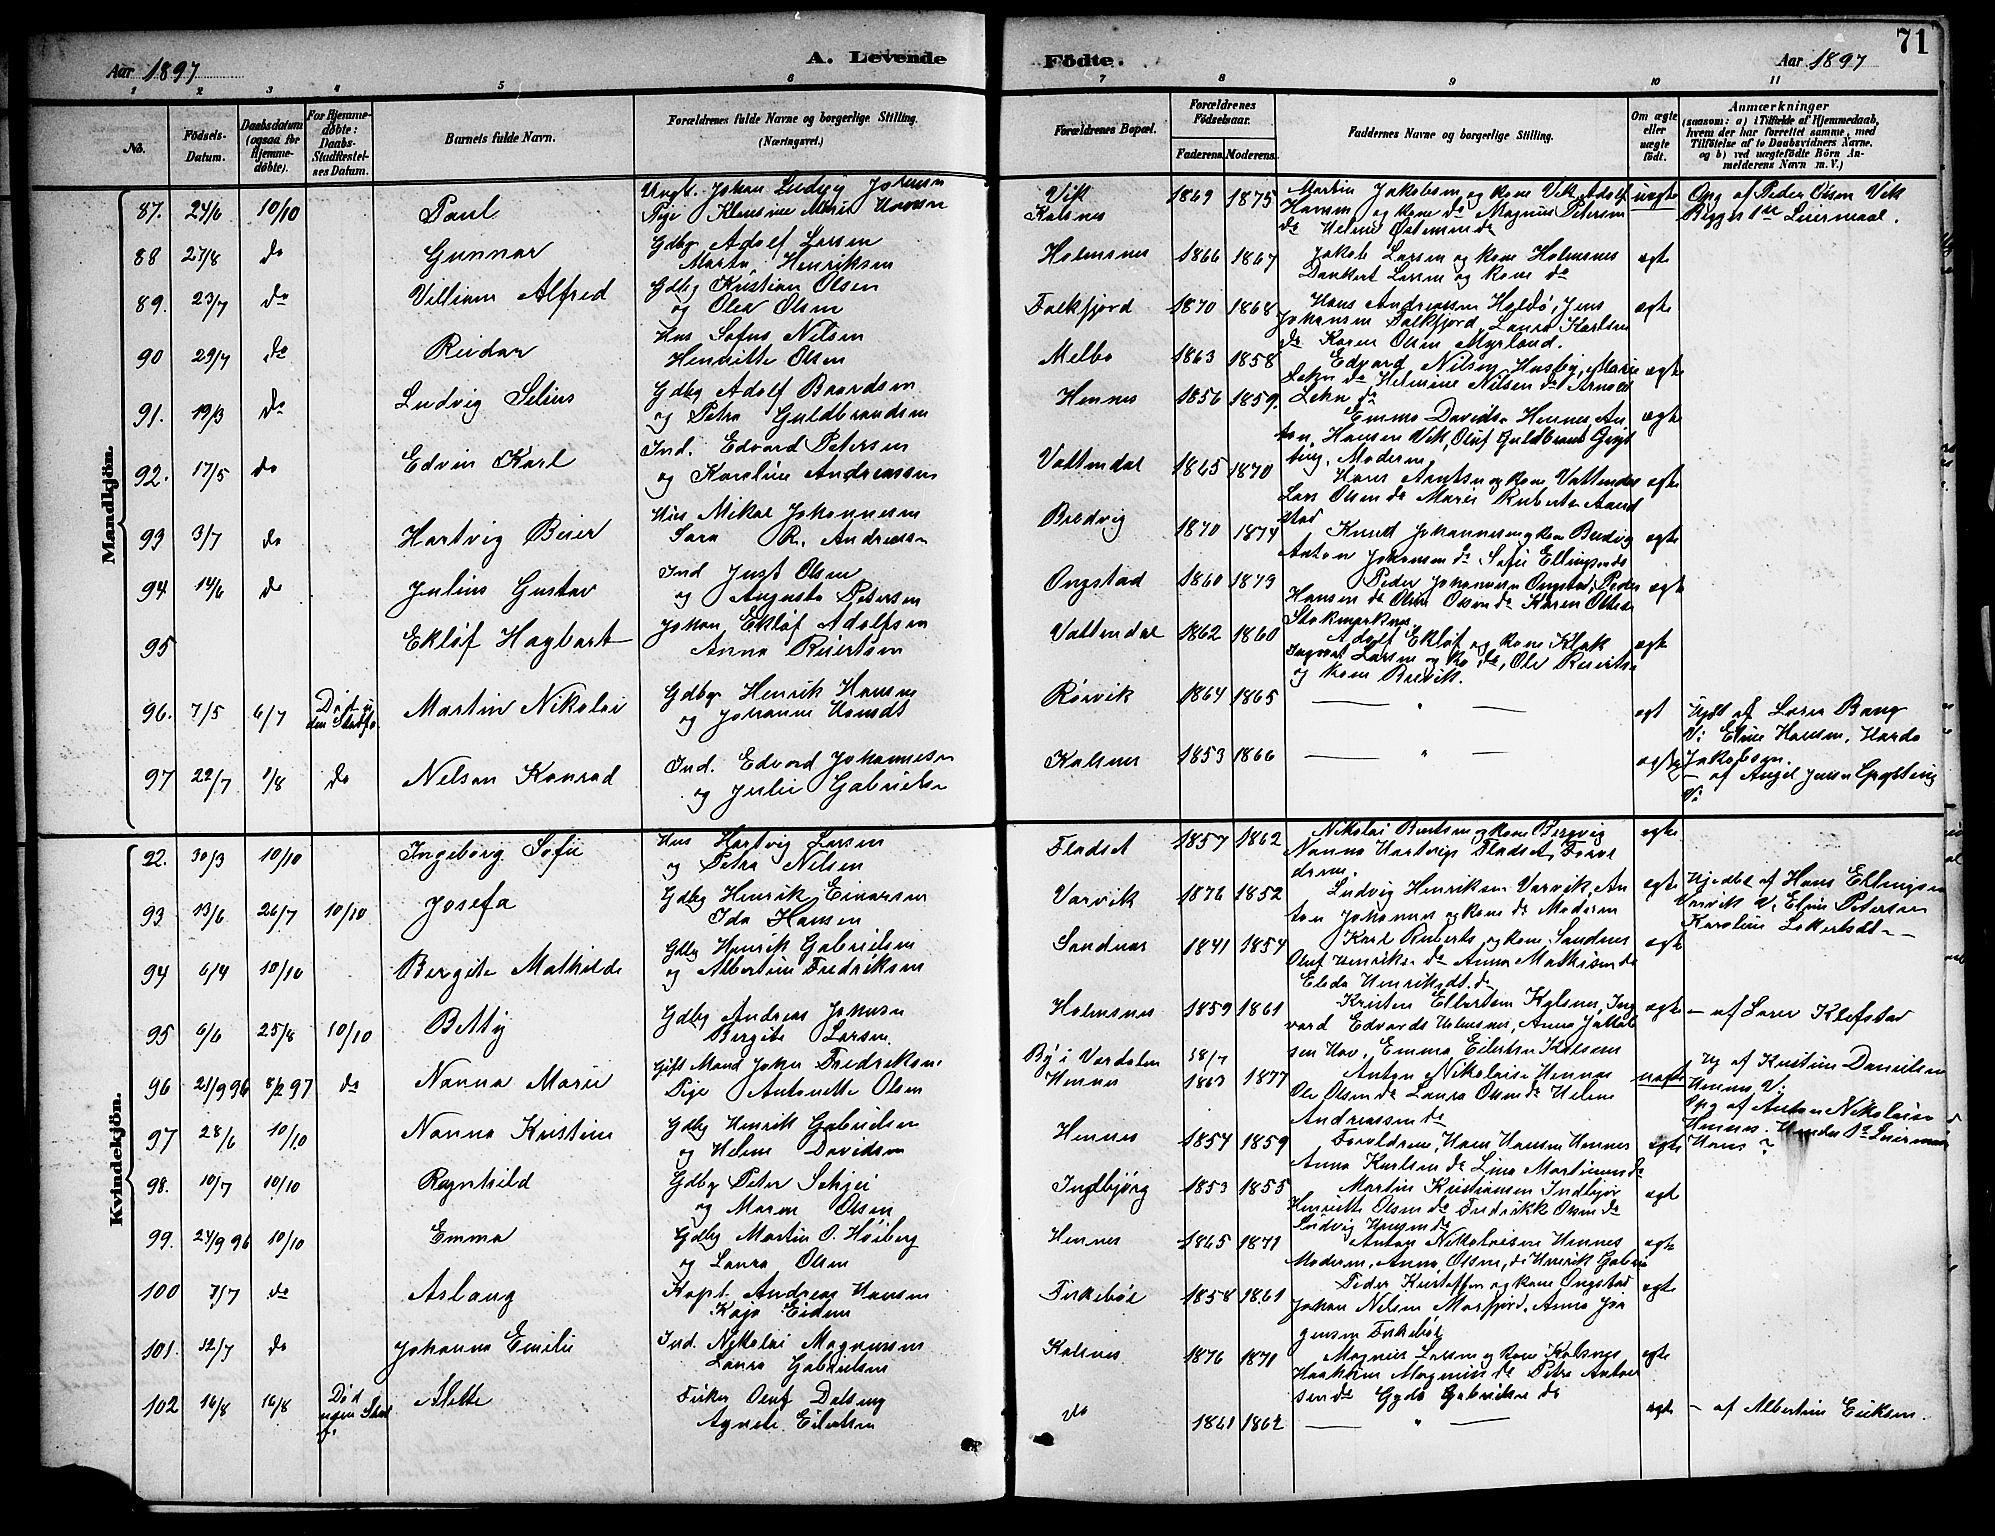 71
Aar 1897
A. Levende
Födte.
Aar 1897
1 2 3 4 5 6 7 8 9 10 11
No.
Födsels-
Datum.
Daabsdatum
(ogsaa for
Hjemme-
döbte).
For Hjemme-
döbte:
Daabs-
Stadfæstel-
ses Datum.
Barnets fulde Navn.
Forældrenes fulde Navne og borgerlige Stilling.
(Næringsvei.)
Forældrenes Bopæl.
Forældrenes
Födselsaar.
Faderens. Moderens.
Faddernes Navne og borgerlige Stilling.
Om ægte
eller
uægte
födt.
Anmærkninger
(saasom: a) i Tilfælde af Hjemmedaab,
hvem der har forrettet samme, med
Tilföielse af to Daabsvidners Navne.
og b) ved uægtefödte Börn An-
melderens Navn m.V.)
Mandkjön.
87. 24/6 10/10 Paul
Ungk. Johan Ludvig Johansen
Pige Klausine Marie Hansen
Vik
Kalsnes
1869 1875
Martin Jakobsen og kone Vik, Adolf
Hansen og kone do Magnus Petersen
do Helene Østensen do
uægte
Opg af Peder Olsen Vik
Begges 1ste Leiermaal.
88 27/8 do Gunnar
Gdbg Adolf Larsen
Marta Henriksen
Holmsnes 1866 1867
Jakob Larsen og kone Holmsnes
Dankert Larsen og kone do
ægte
89. 23/7 do Villiam Alfred
Gdbg Kristian Olsen
og Olea Olsen
Falkfjord 1870 1868
Hans Andreassen Holdö, Jens
Johansen Falkfjord, Laura Karlsen
do Karen Olsen Myrland.
ægte
90 29/7 do Reidar
Hus Sofus Nilsen
Henriette Olsen
Melbo 1863 1858
Edvard Nilsen Husby, Marie
Lekn do Helmine Nilsen do Arnold
Lekn do
ægte
91. 19/3 do Ludvig Selius
Gdbg Adolf Baardsen
og Petra Guldbrandsen
Hennes 1856 1859.
Emma Davids. Hennes, An
ton Hansen Vik, Oluf Guldbrand
Moderen
ægte
92. 17/5 do Edvin Karl
Ind. Edvard Petersen
og Karoline Andreassen
Vattendal 1865 1870
Hans Arntsen og kone Vattendal
Lars Olsen do Marie Rubertsen
ægte
93 3/7 do Hartvig Beier
Hus Nikal Johannesen
Sara R. Andreasen
Bredvig 1870 1874
Knud Johannesen og kone Bredvig
Anton Johansen do Sofie Ellingsen do
ægte
94 14/6 do Julius Gustav
Ind Just Olsen
og Augusta Petersen
Ongstad 1860 1873
Peder Johannesen Ongstad, Peder
Hansen do Oline Olsen do Karen Olsen
Stokmarknes
ægte
95 Ekløf Hagbart
Johan Ekløf Adolfsen
Anna Reiertsen
Vattendal 1862 1860
Adolf Ekløf og kone Klak
Ingvart Larsen og ko do, Ole Reiertsen
og kone Breivik.
ægte
96. 7/5 6/7 Død
Martin Nikolai
Gdbg Henrik Hansen
og Johanne
Rörvik 1864 1865
— " —
ægt
Hjdt af Lorn Bang
V: Eline Hansen, Harda
Jakobsen.
97 22/7 1/8 do Nelson Konrad
Ind. Edvard Johannesen
og Julie Gabrielsen
Kalsnes 1853 1866
— " —
ægte
— af Angel Jensen
V:
Kvindekjön.
22. 30/3 10/10 Ingeborg Sofie
Hus Hartvig Larsen
og Petra Nilsen
Fladset 1857 1862
Nikolai Bertsen og kone Bergvig
Nanna Hartvigs Fladset, Foræl
drene.
ægte
93 13/6 26/7 10/10 Josefa
Gdbg Henrik Einarsen
Ida Hansen
Varvik 1876 1852
Ludvig Henriksen Varvik, An
ton Johannes og kone do Moderen
ægte
Hjedbt af Hans Ellingsen
Varvik V: Eline Petersen
Karoline
94 6/4 10/10 Bergite Mathilde
Gdbg Henrik Gabrielsen
og Albertine Fredriksen
Sandnes 1841 1854
Karl Ruberts og kone Sandnes
Oluf Henriks. do Anna Mathisen do
Elida Henriksdt. do
ægte
95 6/6 25/8 10/10 Betty
Gdbg Andreas Johnsen
Bergite Larsen
Holmsnes 1859 1861
Kristen Ellertsen Kalsnes, Ing
vard Edvards Holmsnes, Anna Jakob
sen Hov, Emma Eilertsen Kalsnes
ægte
— af Lorn Klefstad
96 21/9 96 8/2 97 do Nanna Marie
Gift Mand Johan Fredriksen
Pige Antonette Olsen
By i Værdalen
Hennes
1863 1877
Anton Nikolaisen Hennes
Ole Olsen do Laura Olsen do Helene
Andreassen do
uægte
Hj af Kristine Danielsen
Hennes V:
Opg af Anton Nikolaisen
Hennes. Hendes 1ste Leiermaal
Hans ?
97 28/6 10/10 Nanna Kristine
Gdbg Henrik Gabrielsen
og Helene Davidsen
Hennes 1854 1859
Forældrene, Hans Hansen Hennes
Anna Karlsen do Lina Martinsen do
ægte
98. 10/7 10/10 Ragnhild
Gdbg Peter Schjei
og Maren Olsen
Indbjörg 1853 1855
Martin Kristiansen Indbjör
Henriette Olsen do Fredrikke Olsen do
Ludvig Hansen do
ægt
99. 24/9 96 10/10 Emma
Gdbg Martin O. Høiberg
og Laura Olsen
Hennes 1865 1871
Anton Nikolaisen Hennes
Moderen, Anna Olsen, do Henrik Gabri
ægte
100 7/7 do Aslaug
Kapt. Andreas Hansen
Kaja Eidem
Firkeböl 1858 1861
Peder Kristoffersen og kone Ongstad
Johan Nilsen Morfjord, Anna Jør
gensen Firkeböl
ægte
101. 12/7 do Johanna Emilie
Ind. Nikolai Magnussen
Laura Gabrielsen
Kalsnes 1876 1871
Magnus Larsen og kone Kalsnes
Haakon Magnus do Petra Anton
sen do Gyda Gabrielsen do
ægte
102 16/8 16/8 Død
Alette
Fisker Oluf Dalseng
Agnete Eilertsen
do 1861 1862
— " —
ægte
— af Albertine Eriksen